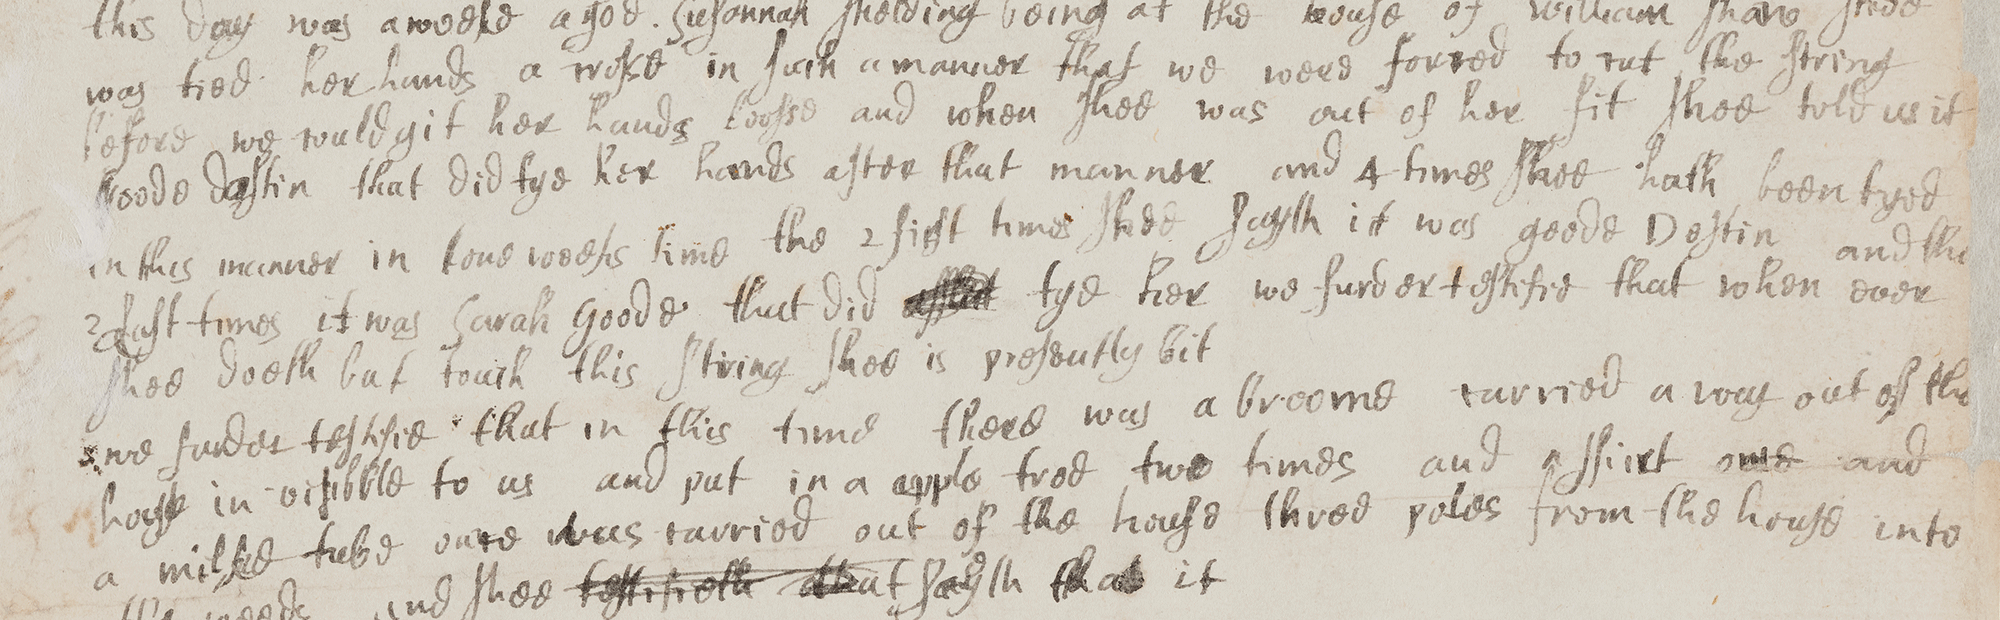 this day was a weeke agoe. Susannah Shelding being at the house of william shaw shee
was tied her hands a crosse in such a manner that we were forced to cut the string
before we could git her hands loosse and when shee was out of her fit shee told us it
goode dastin that did tye her hands after that manner and 4 times shee hath been tyed
in this manner in towe weeks time the 2 first times shee sayth it was goode Destin and the
2 last times it was Sarah goode that did tye her we furder testifie that when ever
shee doeth but touch this string shee is presently bit
we furder testifie that in this time there was a broome carried a way out of the
house invisibble to us and put in a apple tree two times and a shirt once and
a milke tube once was carried out of the house three poles from the house into
the woods and shee testifieth that sayth that it